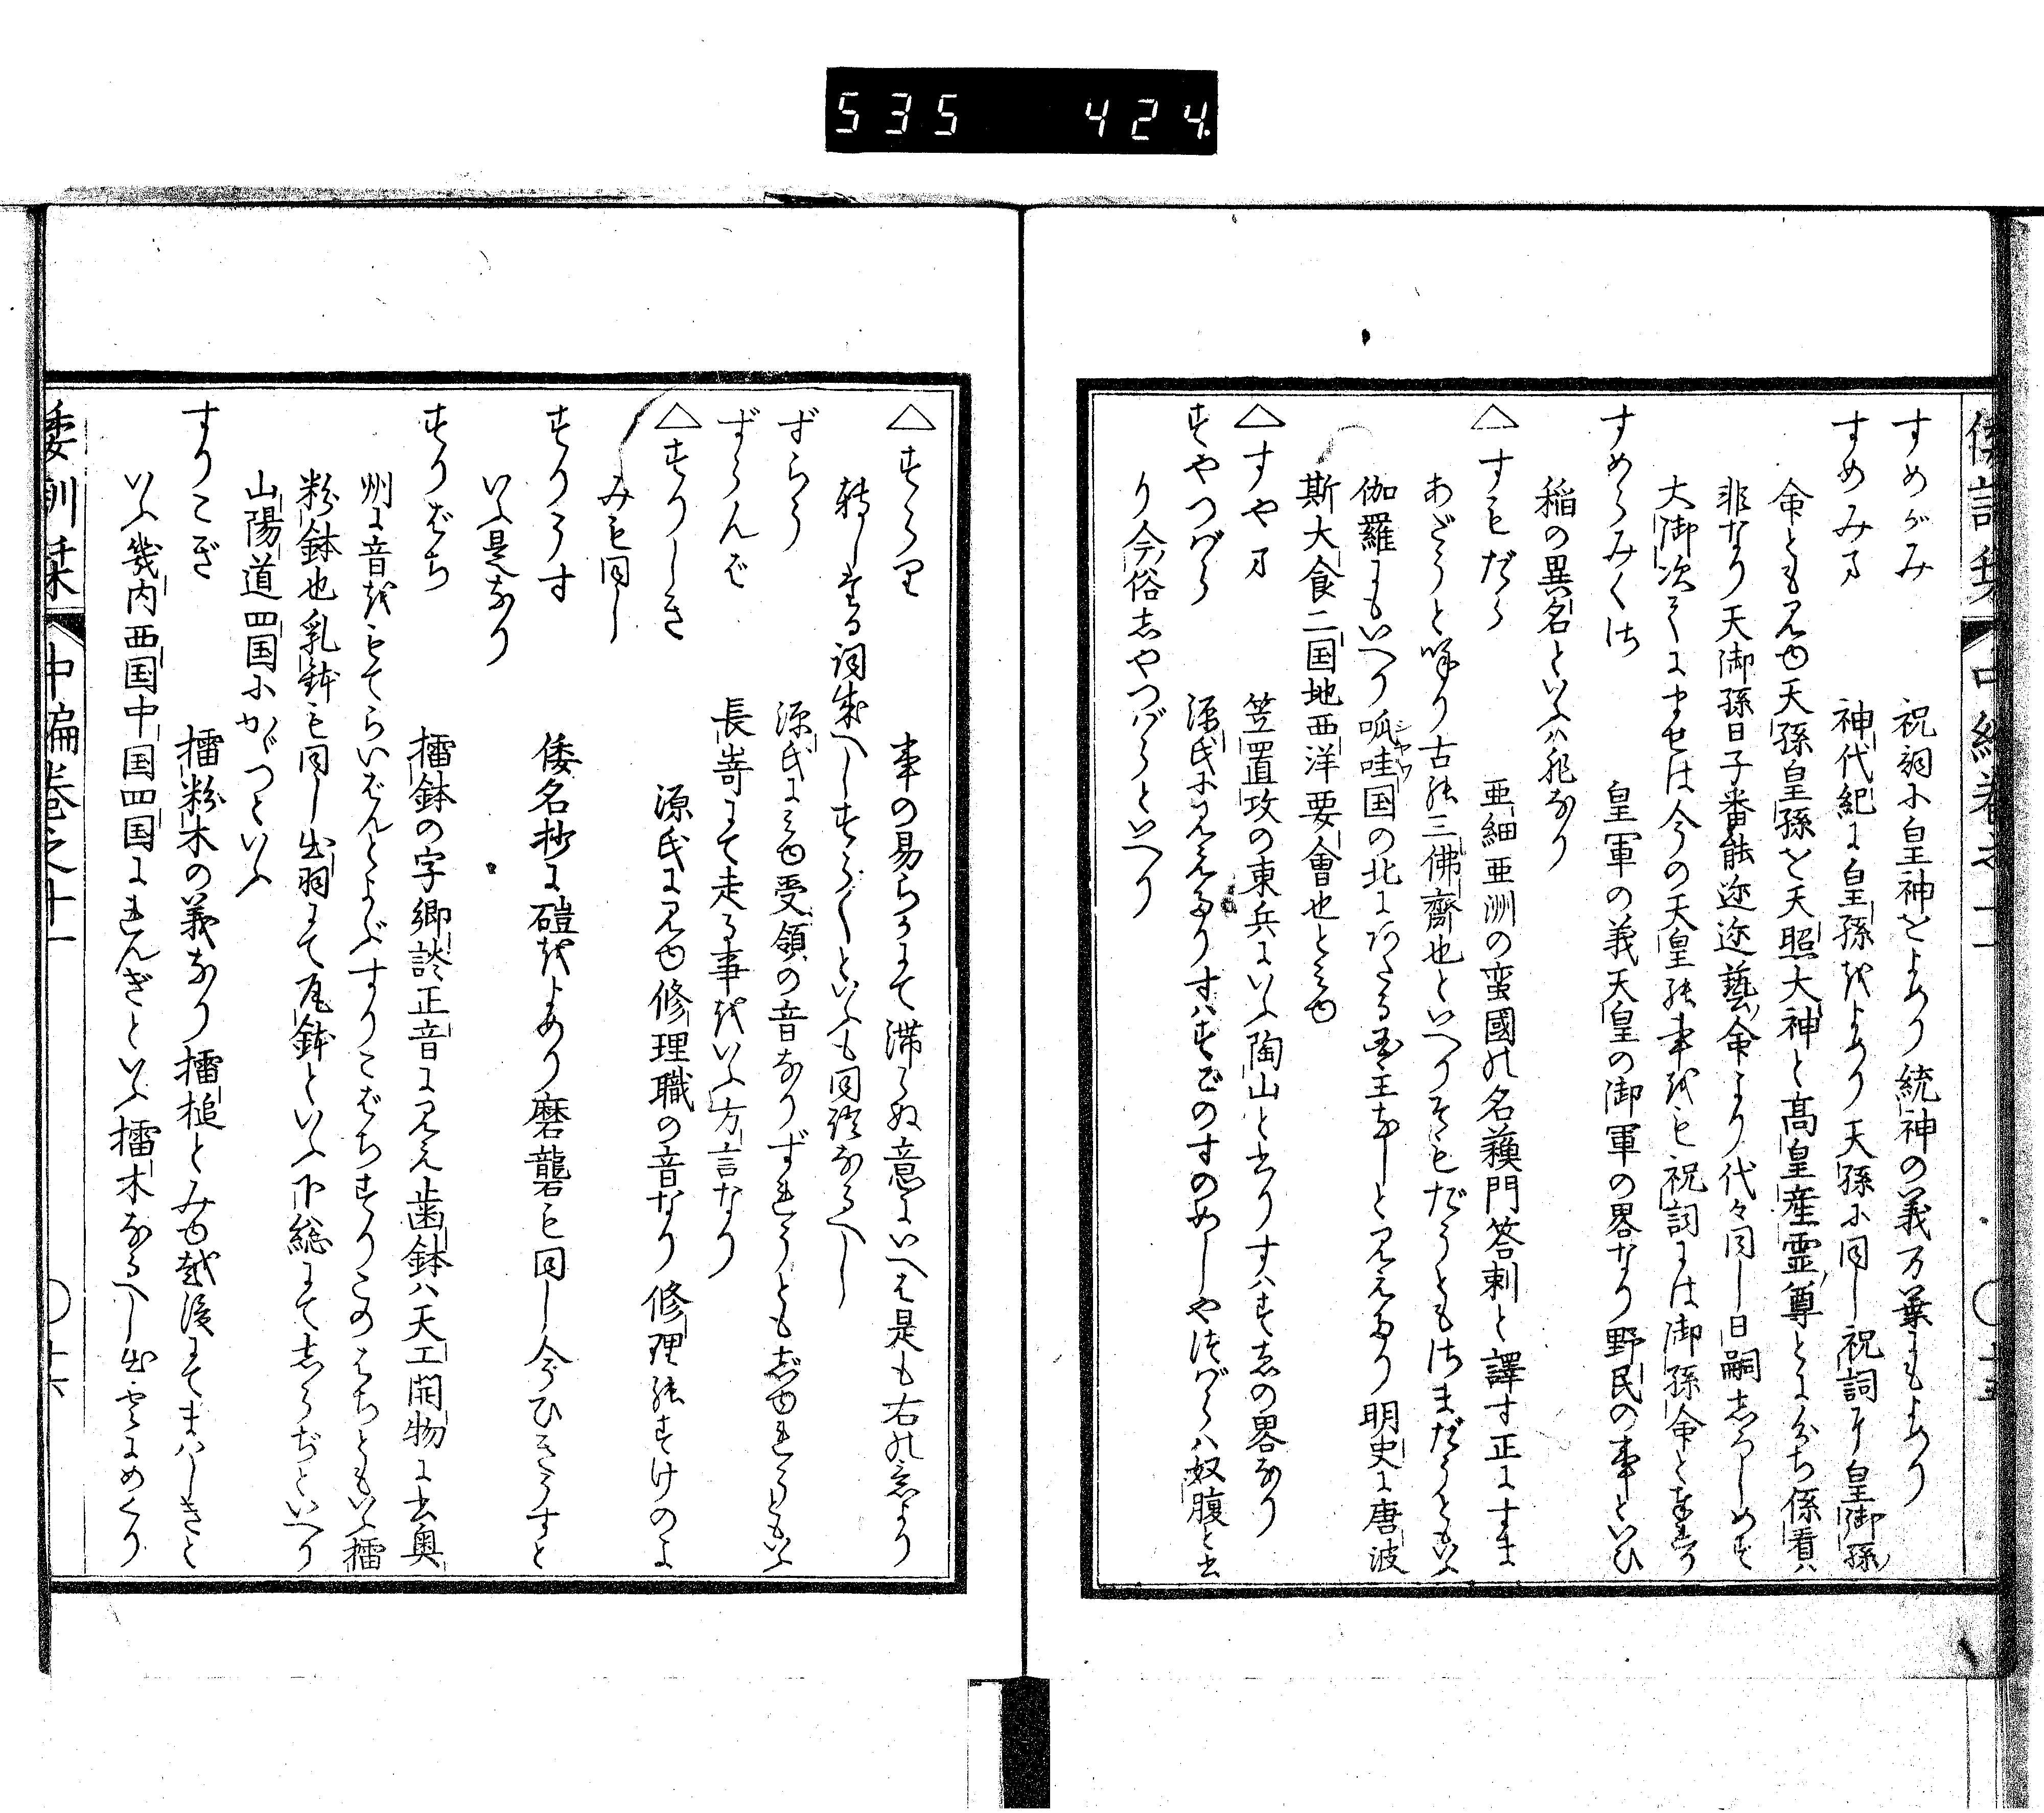 535 424
すめがみ 祝詞に皇神をよめり統神の義万葉にもよめり
すめみま 神代紀に皇孫をよめり天孫に同し祝詞に皇御孫
命とも見ゆ天孫皇孫を天照大神と高皇産霊尊とにわかち係看ハ
非なり天御孫日子番能迩迩藝命より代々同し日嗣しろしめす
大御次々にませは今の天皇の事をも祝詞には御孫命と
すめらみくさ 皇軍の義天皇の御軍の畧なり野民の事といひ
稲の異名といふハ非なり
△すもだら 亜細亜洲の蛮國の名蘓門答剌と譯す正にすま
あだらと呼り古の三佛齊也といへりそもだらともさまだらともいふ
伽羅にもいへり呱哇国の北にあたる国王なしと見えたり明史に唐波
斯大食二国地西洋要會也とみゆ
△すやま 笠置攻の東兵にいふ陶山と書りすハすゑの畧なり
すやつばら 源氏に見えたり すハすべのすのめしやつばらハ奴腹と書
り今俗しやつばらといへり
倭訓栞 中編巻之十一 ○十五
△すらり 事の易らかにて滞らぬ意にいへる是も右の意より
転しする詞成へしすらすらといふも同語なるへし
ずらう 源氏にみゆ受領の音なりずれうともじゆれうともいふ
ずらんば 長嵜にて走る事をいふ方言なり
△すりしき 源氏に見ゆ修理職の音なり修理のすけのよ
みも同し
すりうす 倭名抄に磑をよめり磨礱も同し今ひきうすと
いふ是なり
すりばち 擂鉢の字郷談正音に見え歯鉢ハ天工開物に出奥
州に音をもてらいばんとよぶすりこばちすりこのはちともいふ擂
粉鉢也乳鉢も同し出羽にて瓦鉢といふ下総にてしらぢといへり
山陽道四国にかがつといふ
すりこぎ 擂粉木の義なり擂槌とみゆ越後にてまハしきと
いふ幾内西国中国四国にれんぎといふ擂木なるへし出雲にめくり
倭訓栞 中編巻之十一 ○十六